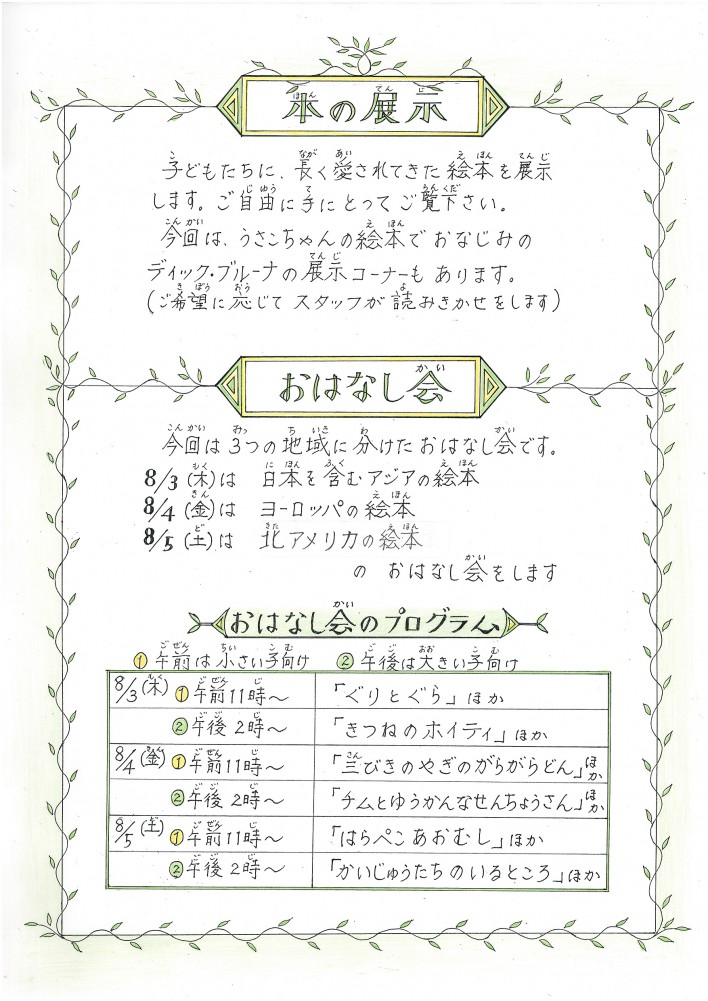 本の展示
子どもたちに、長く愛されてきた絵本を展示
します。ご自由に手にとってご覧下さい。
今回は、うさこちゃんの絵本でおなじみの
ディック・ブルーナの展示コーナーもあります。
(ご希望に応じてスタッフが読みきかせをします)
おはなし会
今回は3つの地域に分けたおはなし会です。
8/3(木)は 日本を含むアジアの絵本
8/4(金)は ヨーロッパの絵本
8/5(土)は 北アメリカの絵本
の おはなし会をします
おはなし会のプログラム
①午前は小さい子向け ②午後は大きい子向け
8/3(木) ①午前11時〜 「ぐりとぐら」ほか
②午後2時〜 「きつねのホイティ」ほか
8/4(金) ①午前11時〜 「三びきのやぎのがらがらどん」ほか
②午後2時〜 「チムとゆうかんなせんちょうさん」ほか
8/5(土) ①午前11時〜 「はらぺこあおむし」ほか
②午後2時〜 「かいじゅうたちのいるところ」ほか